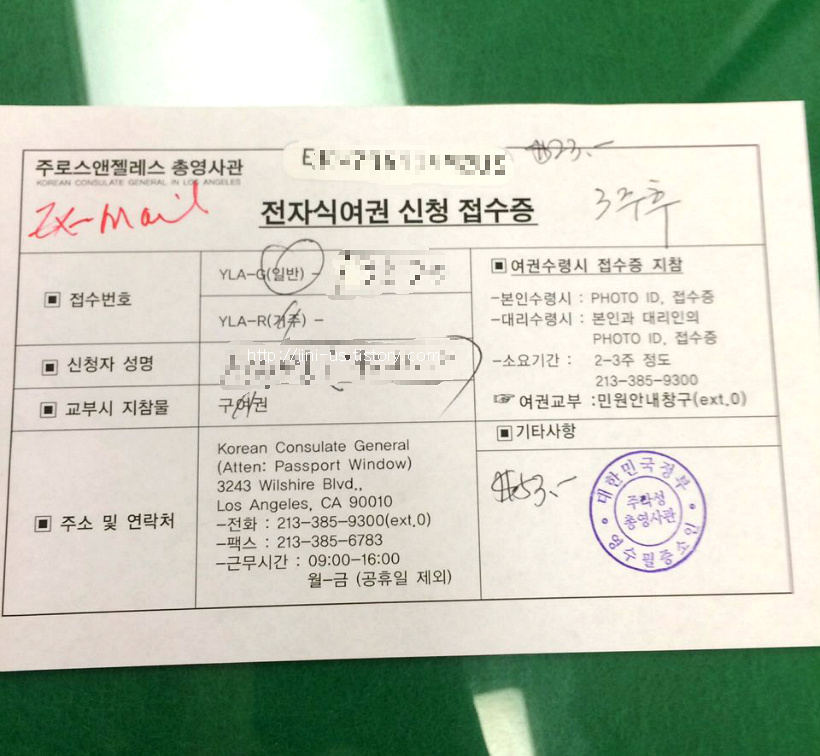 주로스앤젤레스 총영사관
KOREAN CONSULATE GENERAL IN LOS ANGELES
$23.-
Ex-Mail
전자식여권 신청 접수증
3주후
▣ 접수번호
YLA-G(일반) -
YLA-R(거주) -
▣ 신청자 성명
http://jini-us.tistory.com
▣ 교부시 지참물
구여권
▣ 주소 및 연락처
Korean Consulate General
(Atten: Passport Window)
3243 Wilshire Blvd.,
Los Angeles, CA 90010
-전화 : 213-385-9300(ext.0)
-팩스 : 213-385-6783
-근무시간 : 09:00-16:00
월-금 (공휴일 제외)
▣ 여권수령시 접수증 지참
-본인수령시 : PHOTO ID, 접수증
-대리수령시 : 본인과 대리인의
PHOTO ID, 접수증
-소요기간 : 2-3주 정도
213-385-9300
☞ 여권교부 :민원안내창구(ext.0)
▣ 기타사항
$53.-
대한민국정부
주락성
총영사관
영수필증소인